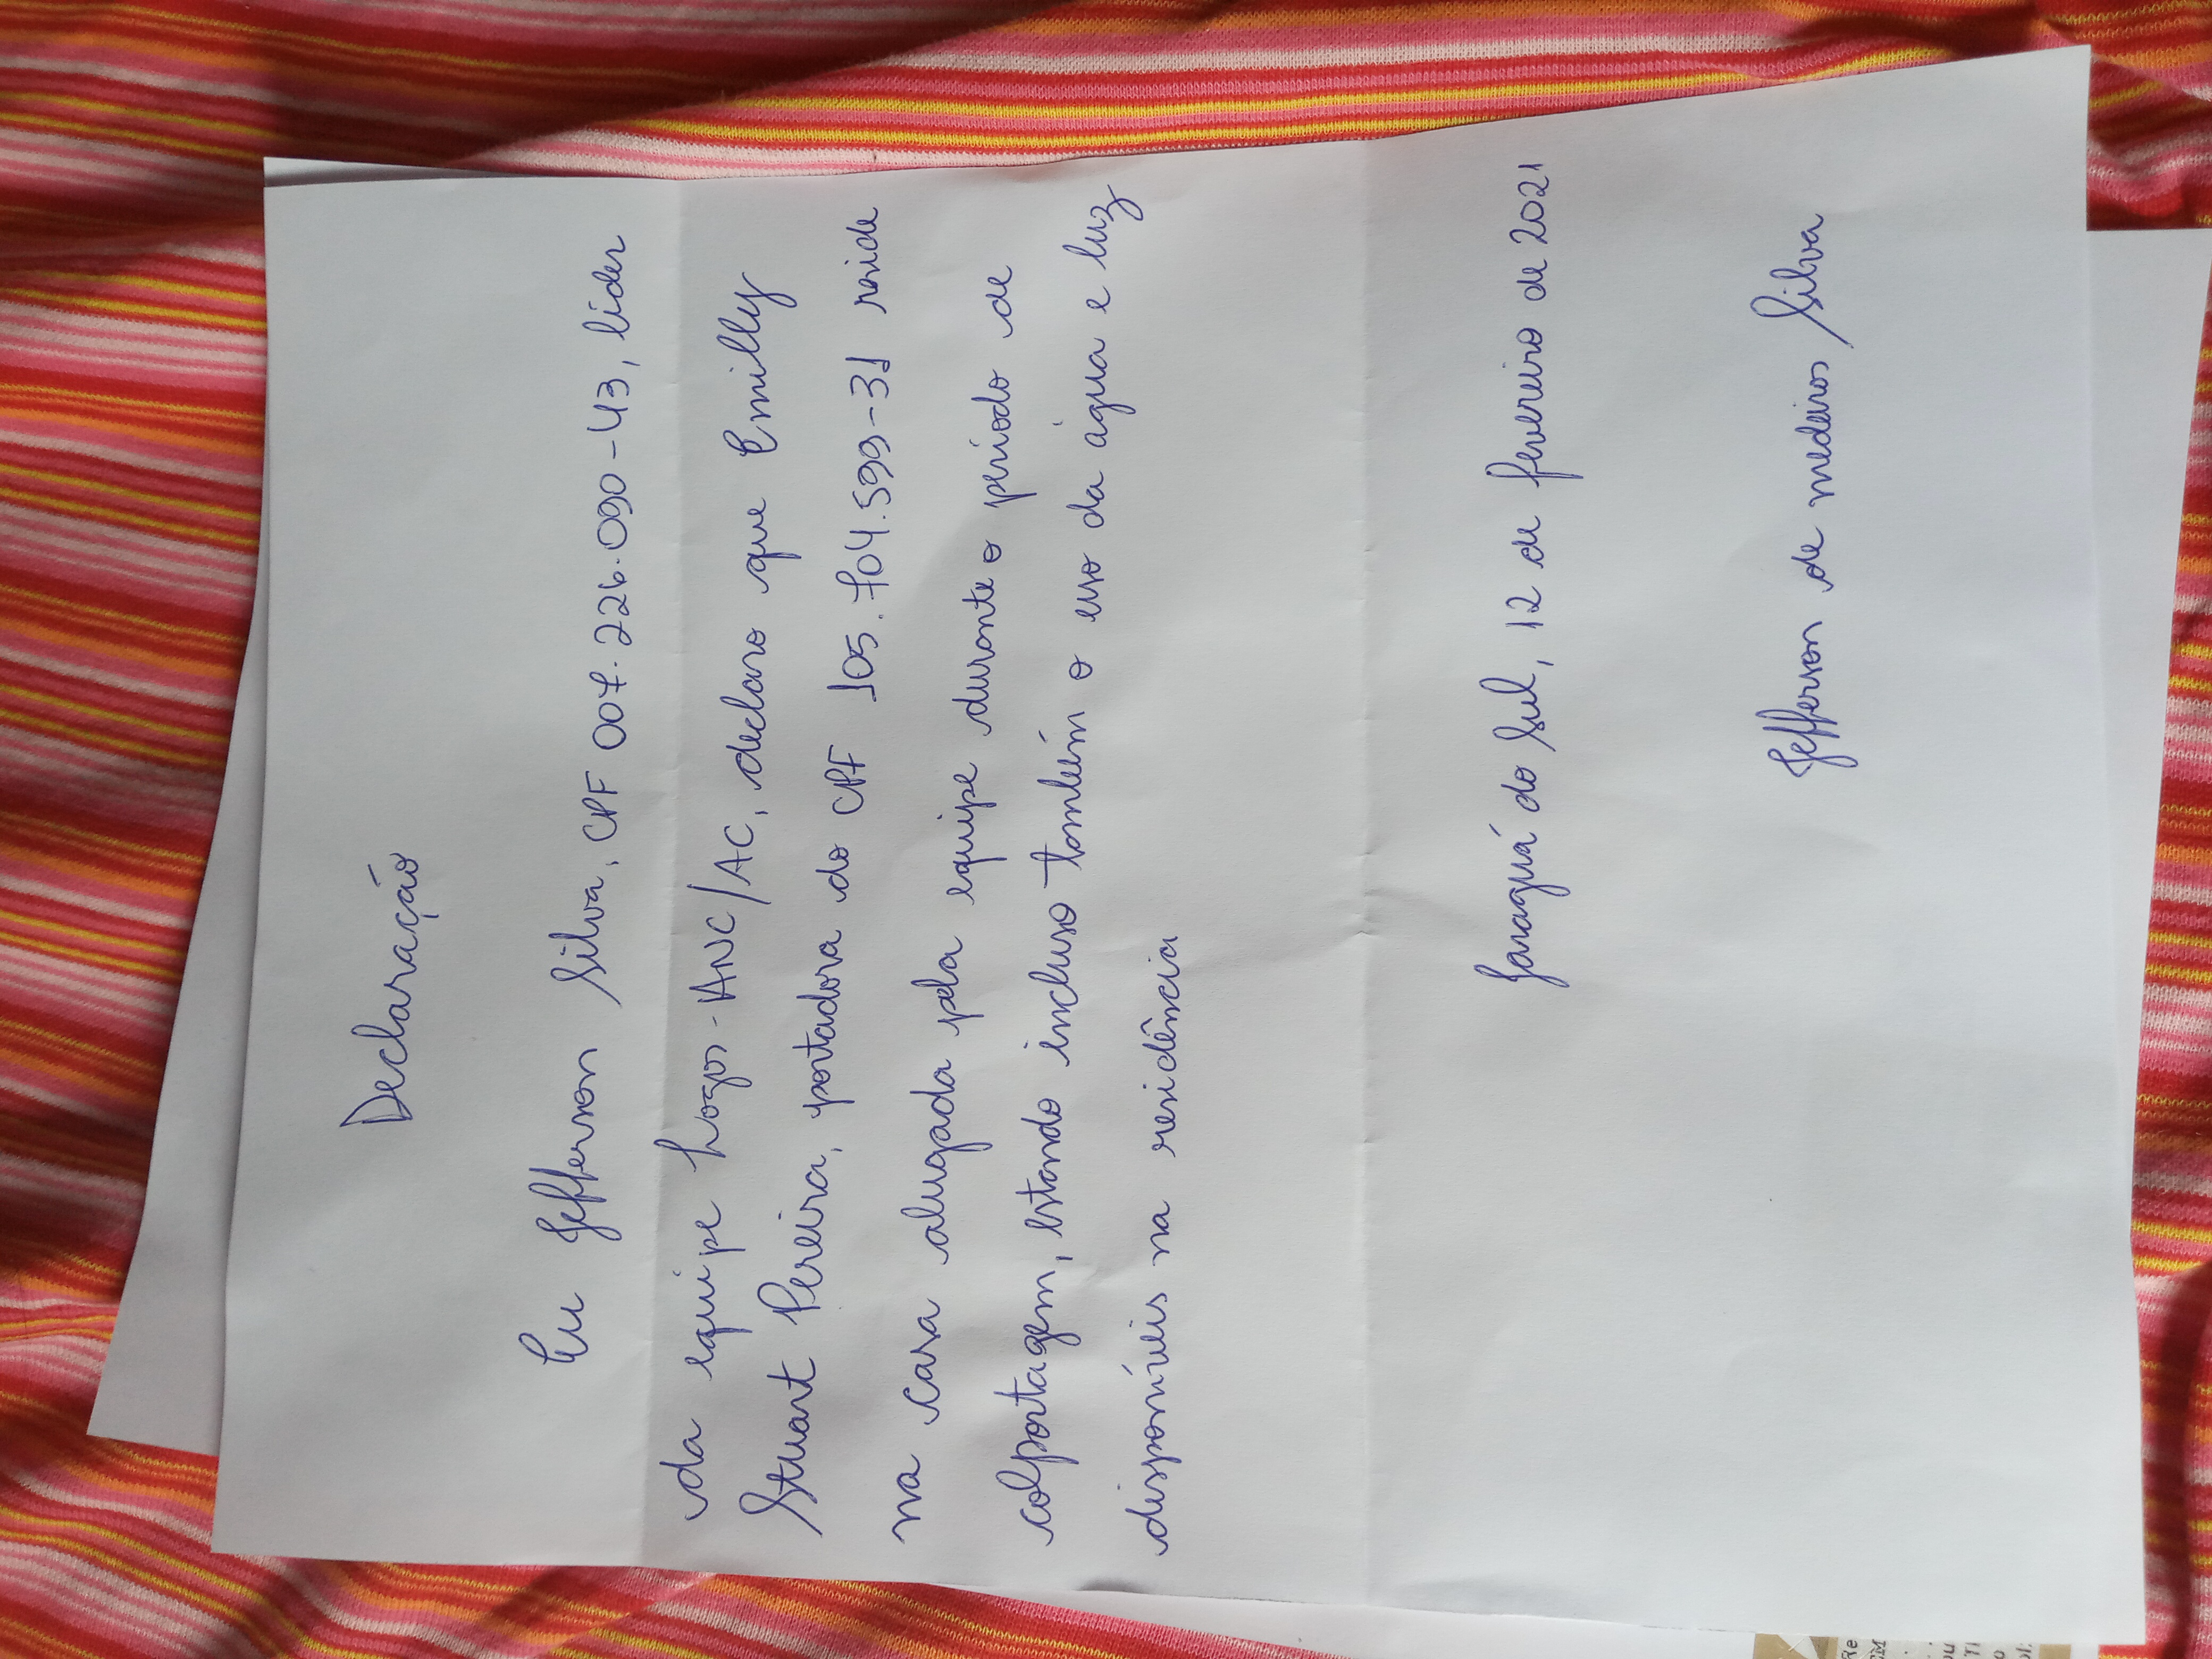 Declaração
Eu Jefferson Silva, CPF 007.226.090-43, líder
da equipe Logos-ANC/AC, declaro que Emilly
Stuart Pereira, portadora do CPF 105.704.599-31 reside
na casa alugada pela equipe durante o período de
colportagem, estando incluso também o uso da água e luz
disponíveis na residência
Jaraguá do Sul, 12 de fevereiro de 2021
Jefferson de medeiros Silva